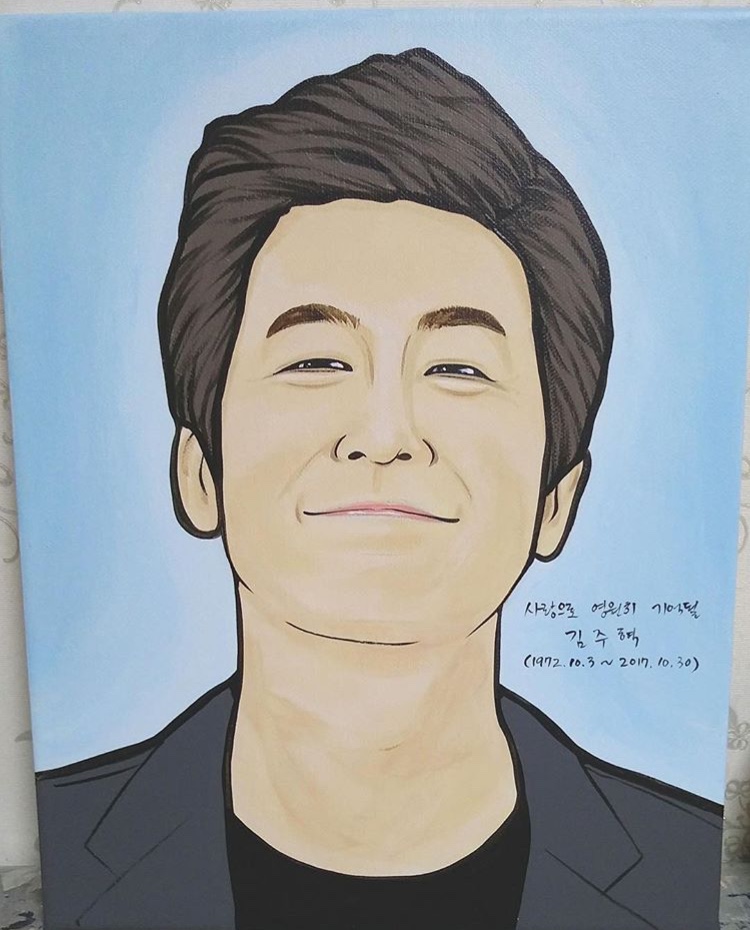 사랑으로 영원히 기억될
김주혁
(1972.10.3 ~ 2017.10.30)